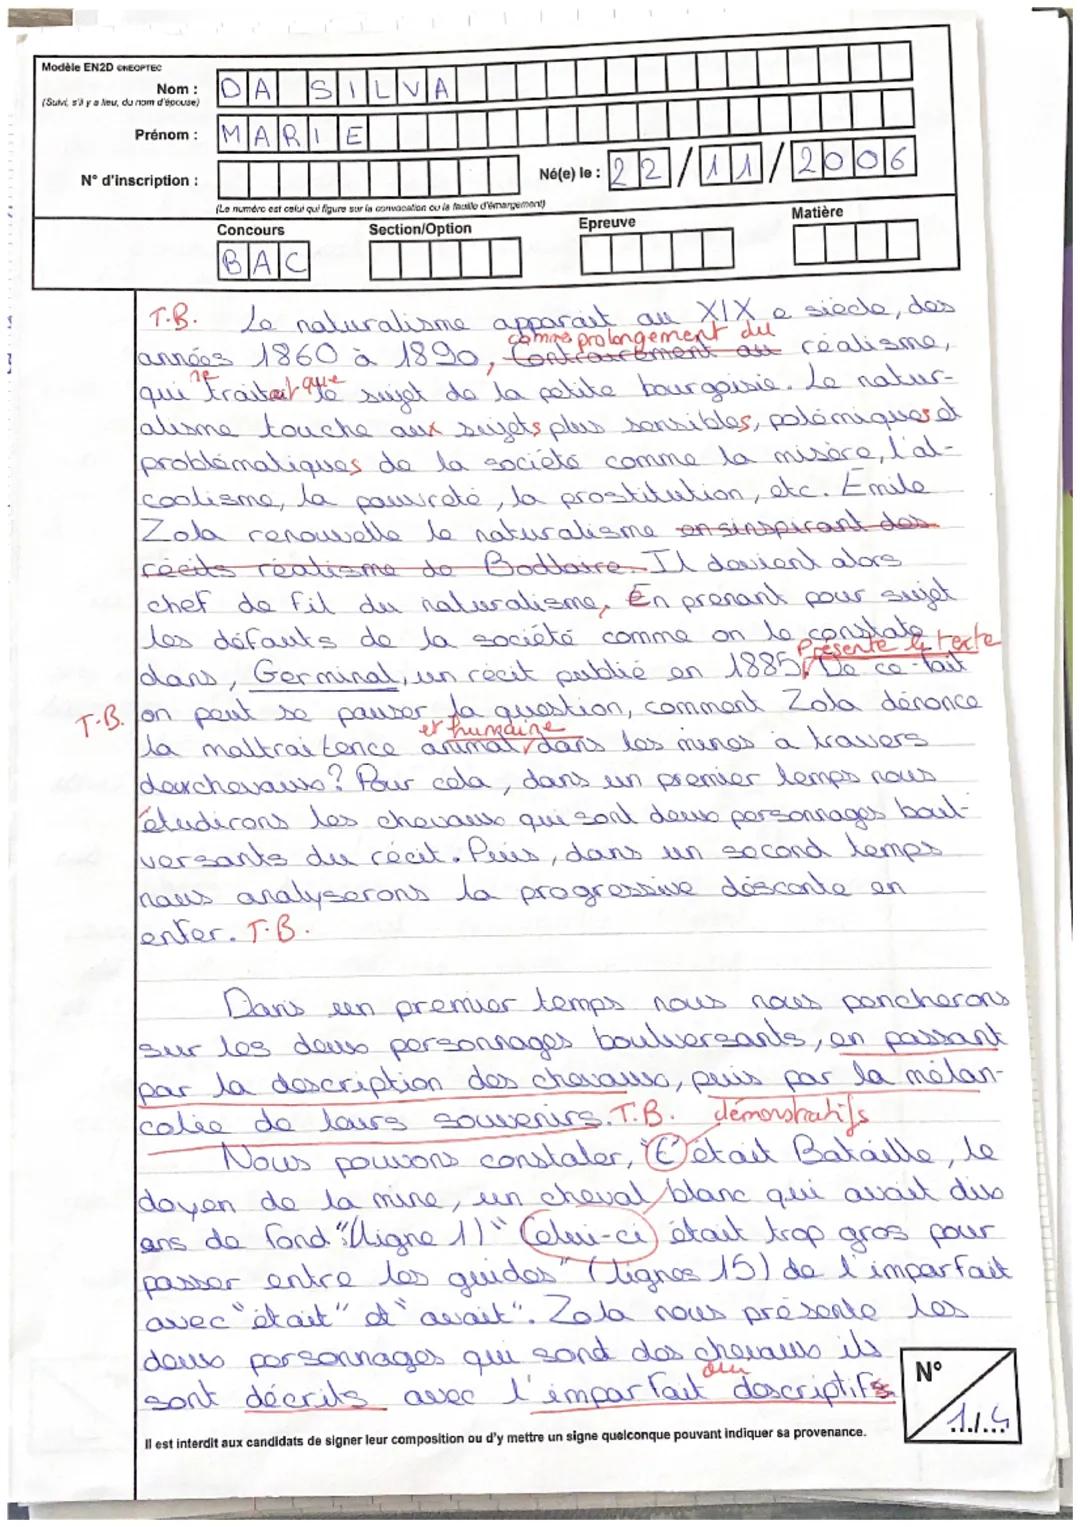 Modèle EN2D ©NEOPTEC
Nom : DA SILVA
(Suivi, s'il y a lieu, du nom d'épouse)
Prénom : MARIE
N° d'inscription :
Né(e) le : 22/11/2006
(Le numéro est celui qui figure sur la convocation ou la feuille d'émargement)
Concours Section/Option Epreuve Matière
BAC
T.B. Le naturalisme apparait au XIX e siècle, des
comme prolongement du
années 1860 à 1890, Contrairement au réalisme,
ne que
qui traitait le sujet de la petite bourgoisie. Le natur-
alisme touche aux sujets plus sensibles, polémiques et
problématiques de la société comme la misère, l'al-
coolisme, la pauvreté, la prostitution, etc. Émile
Zola renouvelle le naturalisme en sinspirant des
récits réalisme de Bodlaire. Il devient alors
chef de fil du naturalisme, En prenant pour sujet
les défauts de la société comme on le constate
présente le texte
dans, Germinal, un récit publié en 1885, De ce fait
T.B. on peut se pauser la question, comment Zola dénonce
et humaine
la maltraitence animal dans les mines à travers
deux chevaux? Pour cela, dans un premier temps nous
étudirons les chevaux qui sont deux personnages boul-
versants du récit. Puis, dans un second temps
nous analyserons la progressive déscente en
enfer. T.B.
Dans un premier temps nous nous poncherons
sur les deux personnages boulversants, en passant
par la description des chevaux, puis par la mélan-
colie de leurs souvenirs. T.B. démonstratifs
Nous pouvons constater, "C'était Bataille, le
doyen de la mine, un cheval blanc qui avait dix
ans de fond" (ligne 1) "Celui-ci était trop gros pour
passer entre les guides" (lignes 15) de l'imparfait
avec "était" et "avait". Zola nous présente les
deux personnages qui sond dos chevaux ils
ou
sont décrits avec l'imparfait descriptifs
N°
1./.4
Il est interdit aux candidats de signer leur composition ou d'y mettre un signe quelconque pouvant indiquer sa provenance.